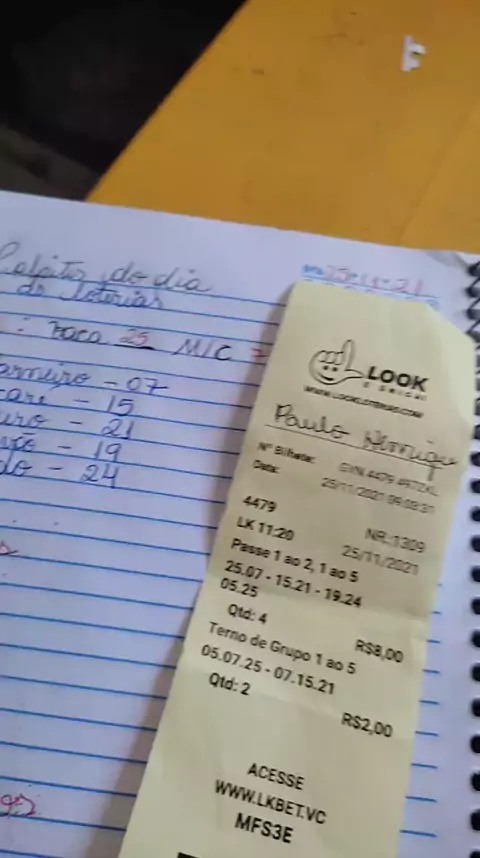 Palpites do dia
de loterias
25-11-21
: vaca 25 M/C
arneiro - 07
caré - 15
uro - 21
- 19
do - 24
LOOK
Paulo Henrique
Nº Bilhete: GYN 4479
Data: 25/11/2021
4479 NR:1309
LK 11:20 25/11/2021
Passe 1 ao 2, 1 ao 5
25.07 - 15.21 - 19.24
05.25
Qtd: 4 R$8,00
Terno de Grupo 1 ao 5
05.07.25 - 07.15.21
Qtd: 2 R$2,00
ACESSE
WWW.LKBET.VC
MFS3E